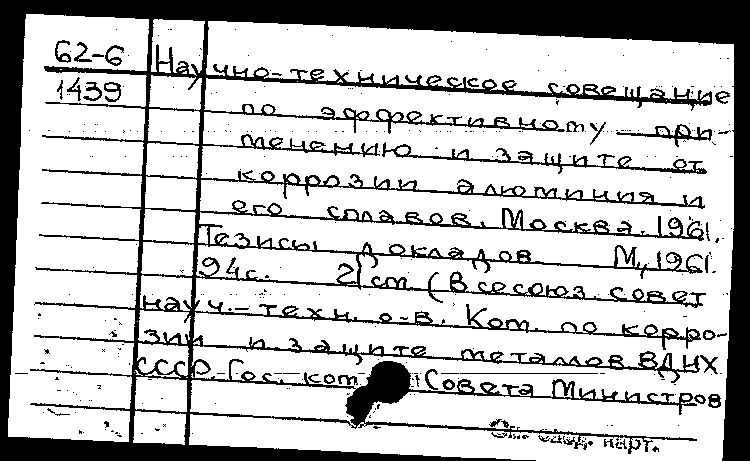 62-6 Научно-техническое совещание
1439
по эффективному при-
менению и защите от
коррозии алюминия и
его сплавов. Москва. 1961.
Тезисы докладов. М., 1961.
94с. 21 см (Всесоюз. совет
науч.-техн. о-в. Ком. по корро-
зии и защите металлов ВДНХ
СССР. Гос. ком Совета Министров
См. след. карт.